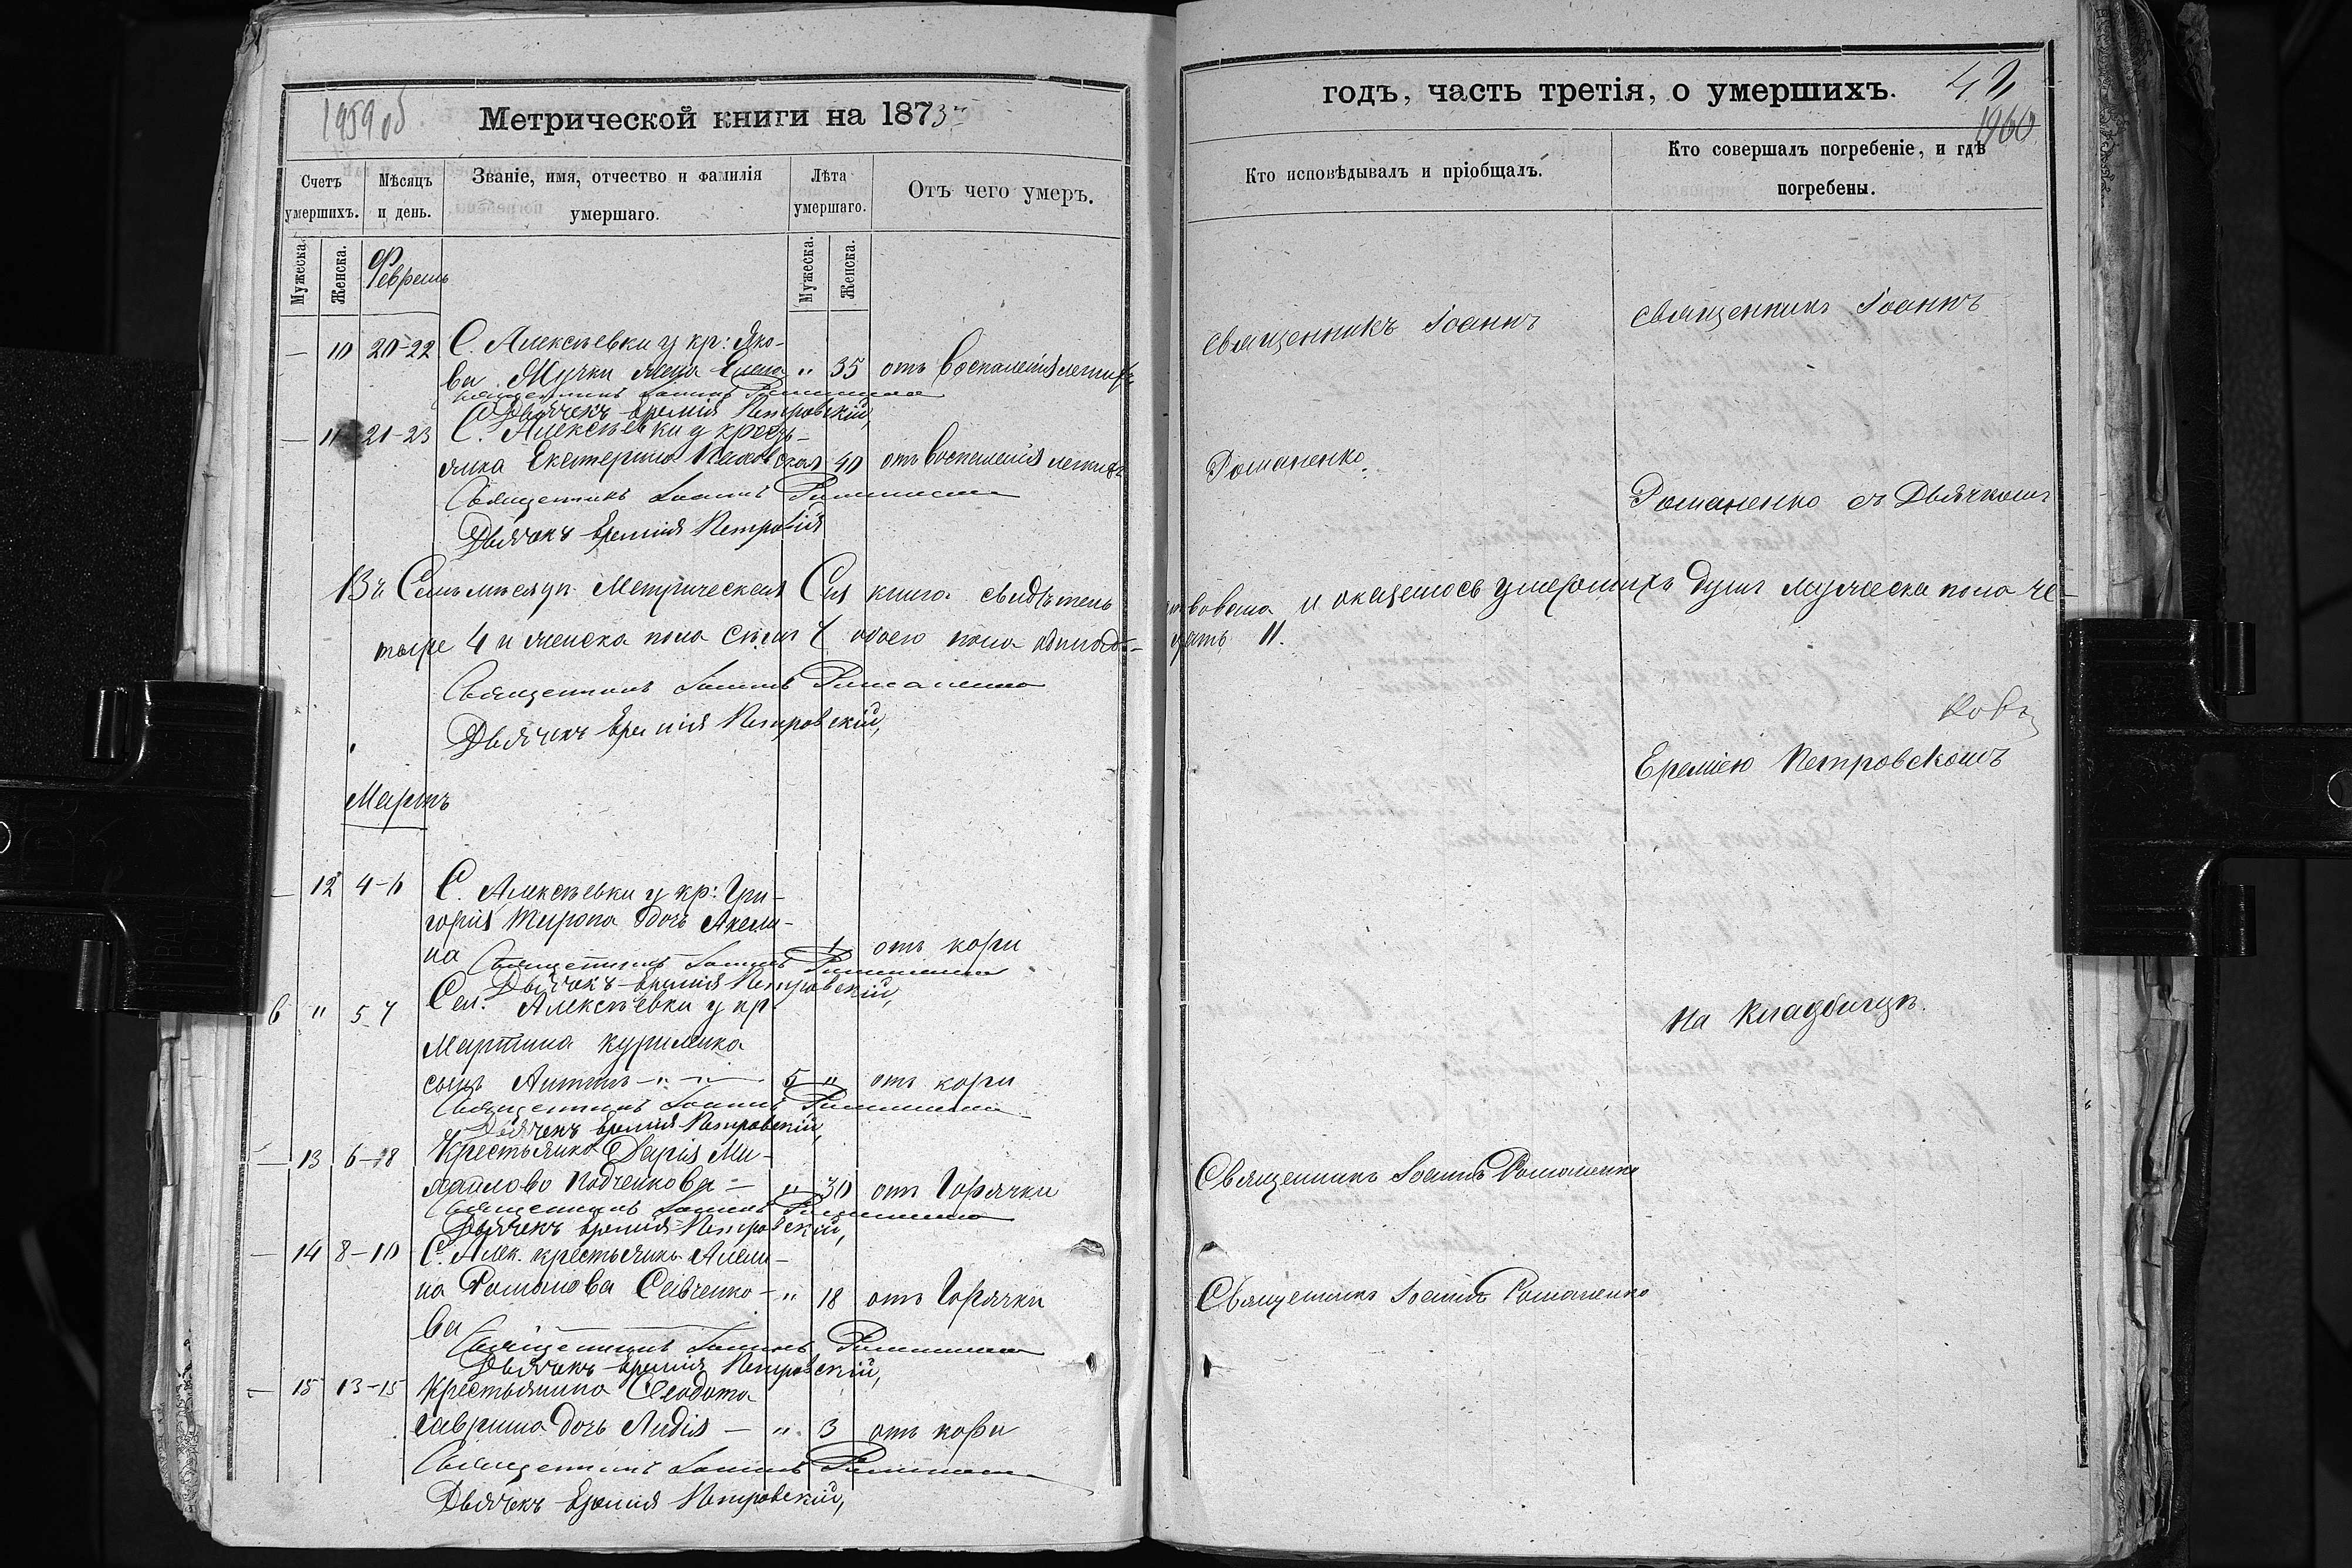 1959 об
Метрической книги на 1873
Счетъ умершихъ.
Мѣсяцъ и день.
Званіе, имя, отчество и фамилія умершаго.
Лѣта умершаго.
Отъ чего умеръ.
Мужеска.
Женска.
Февраль
Мужеска.
Женска.
— 10 20-22 С. Алексѣевки у кр: Яко-
ва Мучки жена Елена " 35 отъ воспаленія легкихъ
Священникъ Іоаннъ Романенко
Дьячекъ Еремія Петровскій,
— 11 21-23 С. Алексѣевки у кресть-
янка Екатерина 40 отъ воспаленія легкихъ
Священникъ Іоаннъ Романенко
Дьячекъ Еремія Петровскій
Въ Семъ мѣсяцѣ Метрическая Сія книга свидѣтель
тыре 4 и женска пола семь 7 обоего пола одинад-
Священникъ Іоаннъ Романенко
Дьячекъ Еремія Петровскій,
Мартъ
— 12 4-6 С. Алексѣевки у кр: Гри-
горія дочь Акели-
на 1 отъ кори
Священникъ Іоаннъ Романенко
Дьячекъ Еремія Петровскій,
6 " 5-7 Сел. Алексѣевки у кр.
Мартина
сынъ Антонъ 5 " отъ кори
Священникъ Іоаннъ Романенко
Дьячекъ Еремія Петровскій,
— 13 6-8 Крестьянка Дарія Ми-
хайлова Подченкова — " 30 отъ Горячки
Священникъ Іоаннъ Романенко
Дьячекъ Еремія Петровскій,
— 14 8-10 С. Алек. крестьянка Акели-
на Романова Савченко- " 18 отъ Горячки
ва
Священникъ Іоаннъ Романенко
Дьячекъ Еремія Петровскій,
— 15 13-15 Крестьянина Феодота
Гавриша дочь Лидія — " 3 отъ кори
Священникъ Іоаннъ Романенко
Дьячекъ Еремія Петровскій,
годъ, часть третія, о умершихъ.
42
1960
Кто исповѣдывалъ и пріобщалъ.
Кто совершалъ погребеніе, и гдѣ
погребены.
священникъ Іоаннъ
священникъ Іоаннъ
Романенко
Романенко съ Дьячкомъ
ствована и оказалось умершихъ душъ мужеска пола че-
цать 11.
Еремією Петровскомъ
На кладбищѣ.
Священникъ Іоаннъ Романенко
Священникъ Іоаннъ Романенко